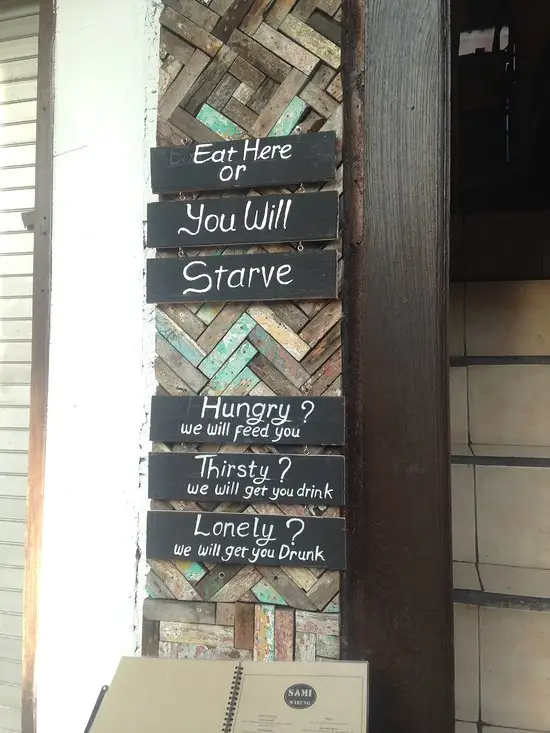 Eat Here
or
You Will
Starve
Hungry ?
we will feed you
Thirsty ?
we will get you drink
Lonely ?
we will get you Drunk
SAMI
WARUNG